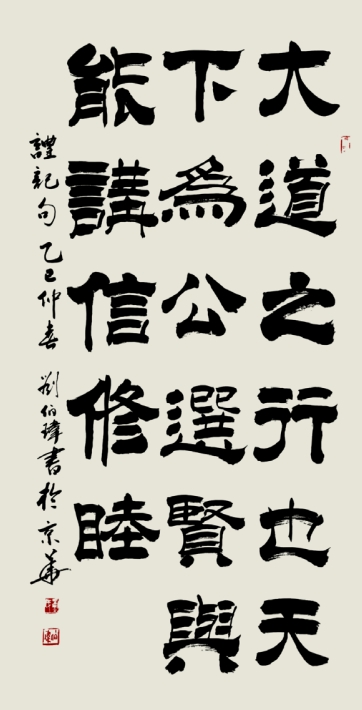 大道之行也天
下為公選賢與
能講信修睦
禮記句 乙巳仲春 劉伯瑋書於京華